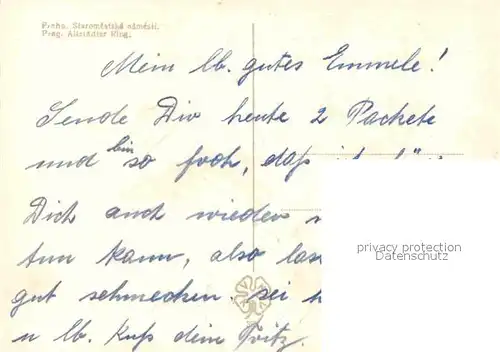 Praha. Staroměstské náměstí.
Prag. Altstädter Ring.
Mein lb. gutes Emmele!
Sende Dir heute 2 Packete
und bin so froh, daß
Dich auch wieder
tun kann, also
gut schmecken. sei
u lb. Kuß dein Fritz.
privacy protection
Datenschutz